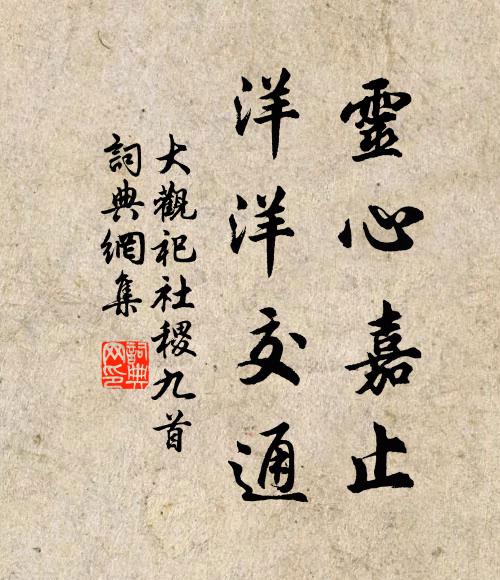 靈心嘉止
洋洋交通
大觀祀社稷九首
詞典網集
詞典
网印